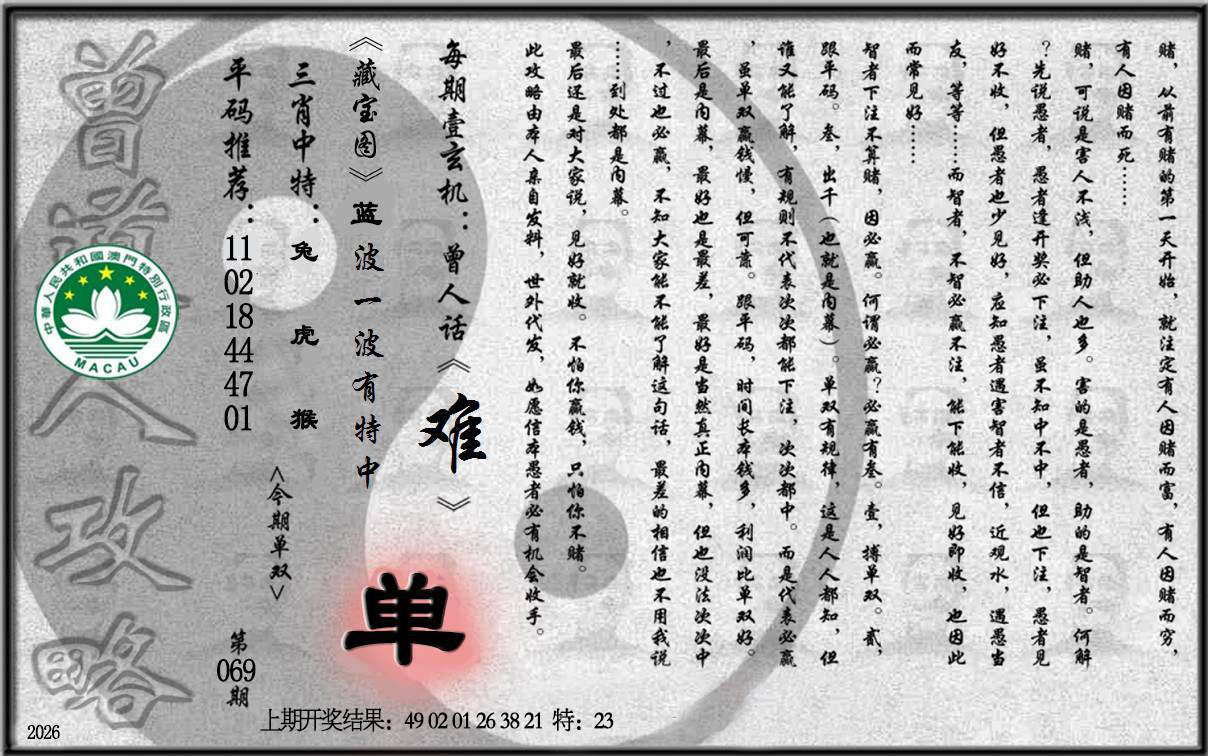 赌，从前有赌的第一天开始，就注定有人因赌而富，有人因赌而穷，
有人因赌而死……
赌，可说是害人不浅，但助人也多。害的是愚者，助的是智者。何解
？先说愚者，愚者逢开奖必下注，虽不知中不中，但也下注，愚者见
好不收，但愚者也少见好，应知愚者遇害智者不信，近观水，遇愚当
友，等等……而智者，不智必赢不注，能下能收，见好即收，也因此
而常见好……
智者下注不算赌，因必赢。何谓必赢？必赢有叁。壹，搏单双。贰，
跟平码。叁，出千（也就是内幕）。单双有规律，这是人人都知，但
谁又能了解，有规则不代表次次都能下注，次次都中。而是代表必赢
，虽单双赢钱慢，但可靠。跟平码，时间长本钱多，利润比单双好。
最后是内幕，最好也是最差，最好是当然真正内幕，但也没法次次中
，不过也必赢，不知大家能不能了解这句话，最差的相信也不用我说
……到处都是内幕。
最后还是对大家说，见好就收。不怕你赢钱，只怕你不赌。
此攻略由本人亲自发料，世外代发，如愿信本愚者必有机会收手。
每期壹玄机：曾人话《难》
《藏宝图》蓝波一波有特中
单
三肖中特：兔 虎 猴
<今期单双>
平码推荐：11 02 18 44 47 01
第069期
曾道人攻略
中華人民共和國澳門特別行政區
MACAU
上期开奖结果：49 02 01 26 38 21 特：23
2026